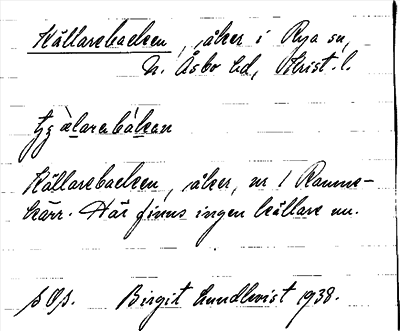 Källarebacken, åker i Rya sn,
N. Åsbo hd, Krist. l.
Källarebacken, åker, nr 1 Ramne-
kärr. Här finns ingen källare nu.
Birgit Lundkvist 1938.